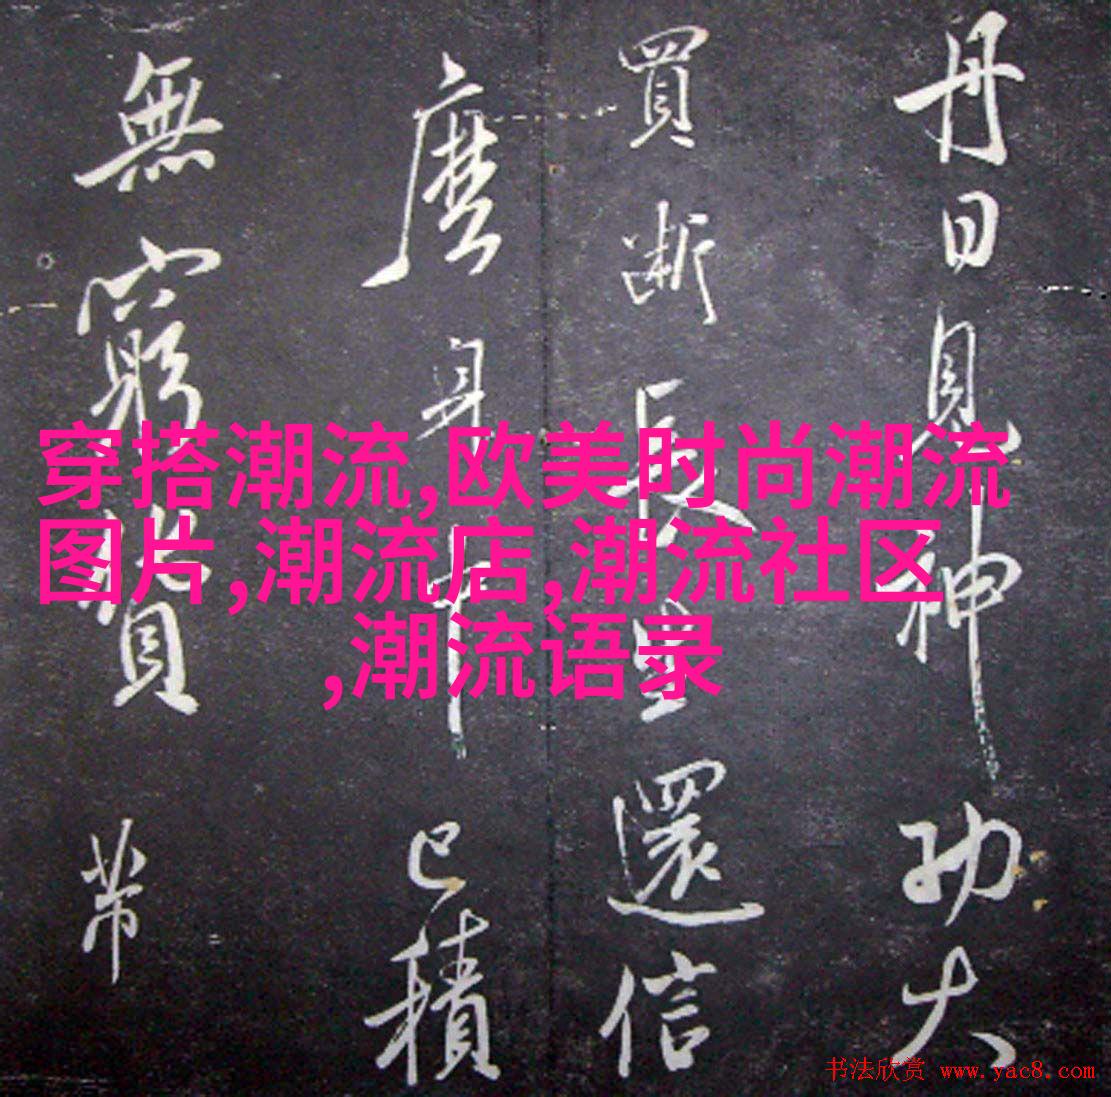 丹日見神功大
買断長還信
身已積
無窮帶
穿搭潮流,欧美时尚潮流
图片,潮流店,潮流社区
,潮流语录
书法欣赏 www.yac8.com